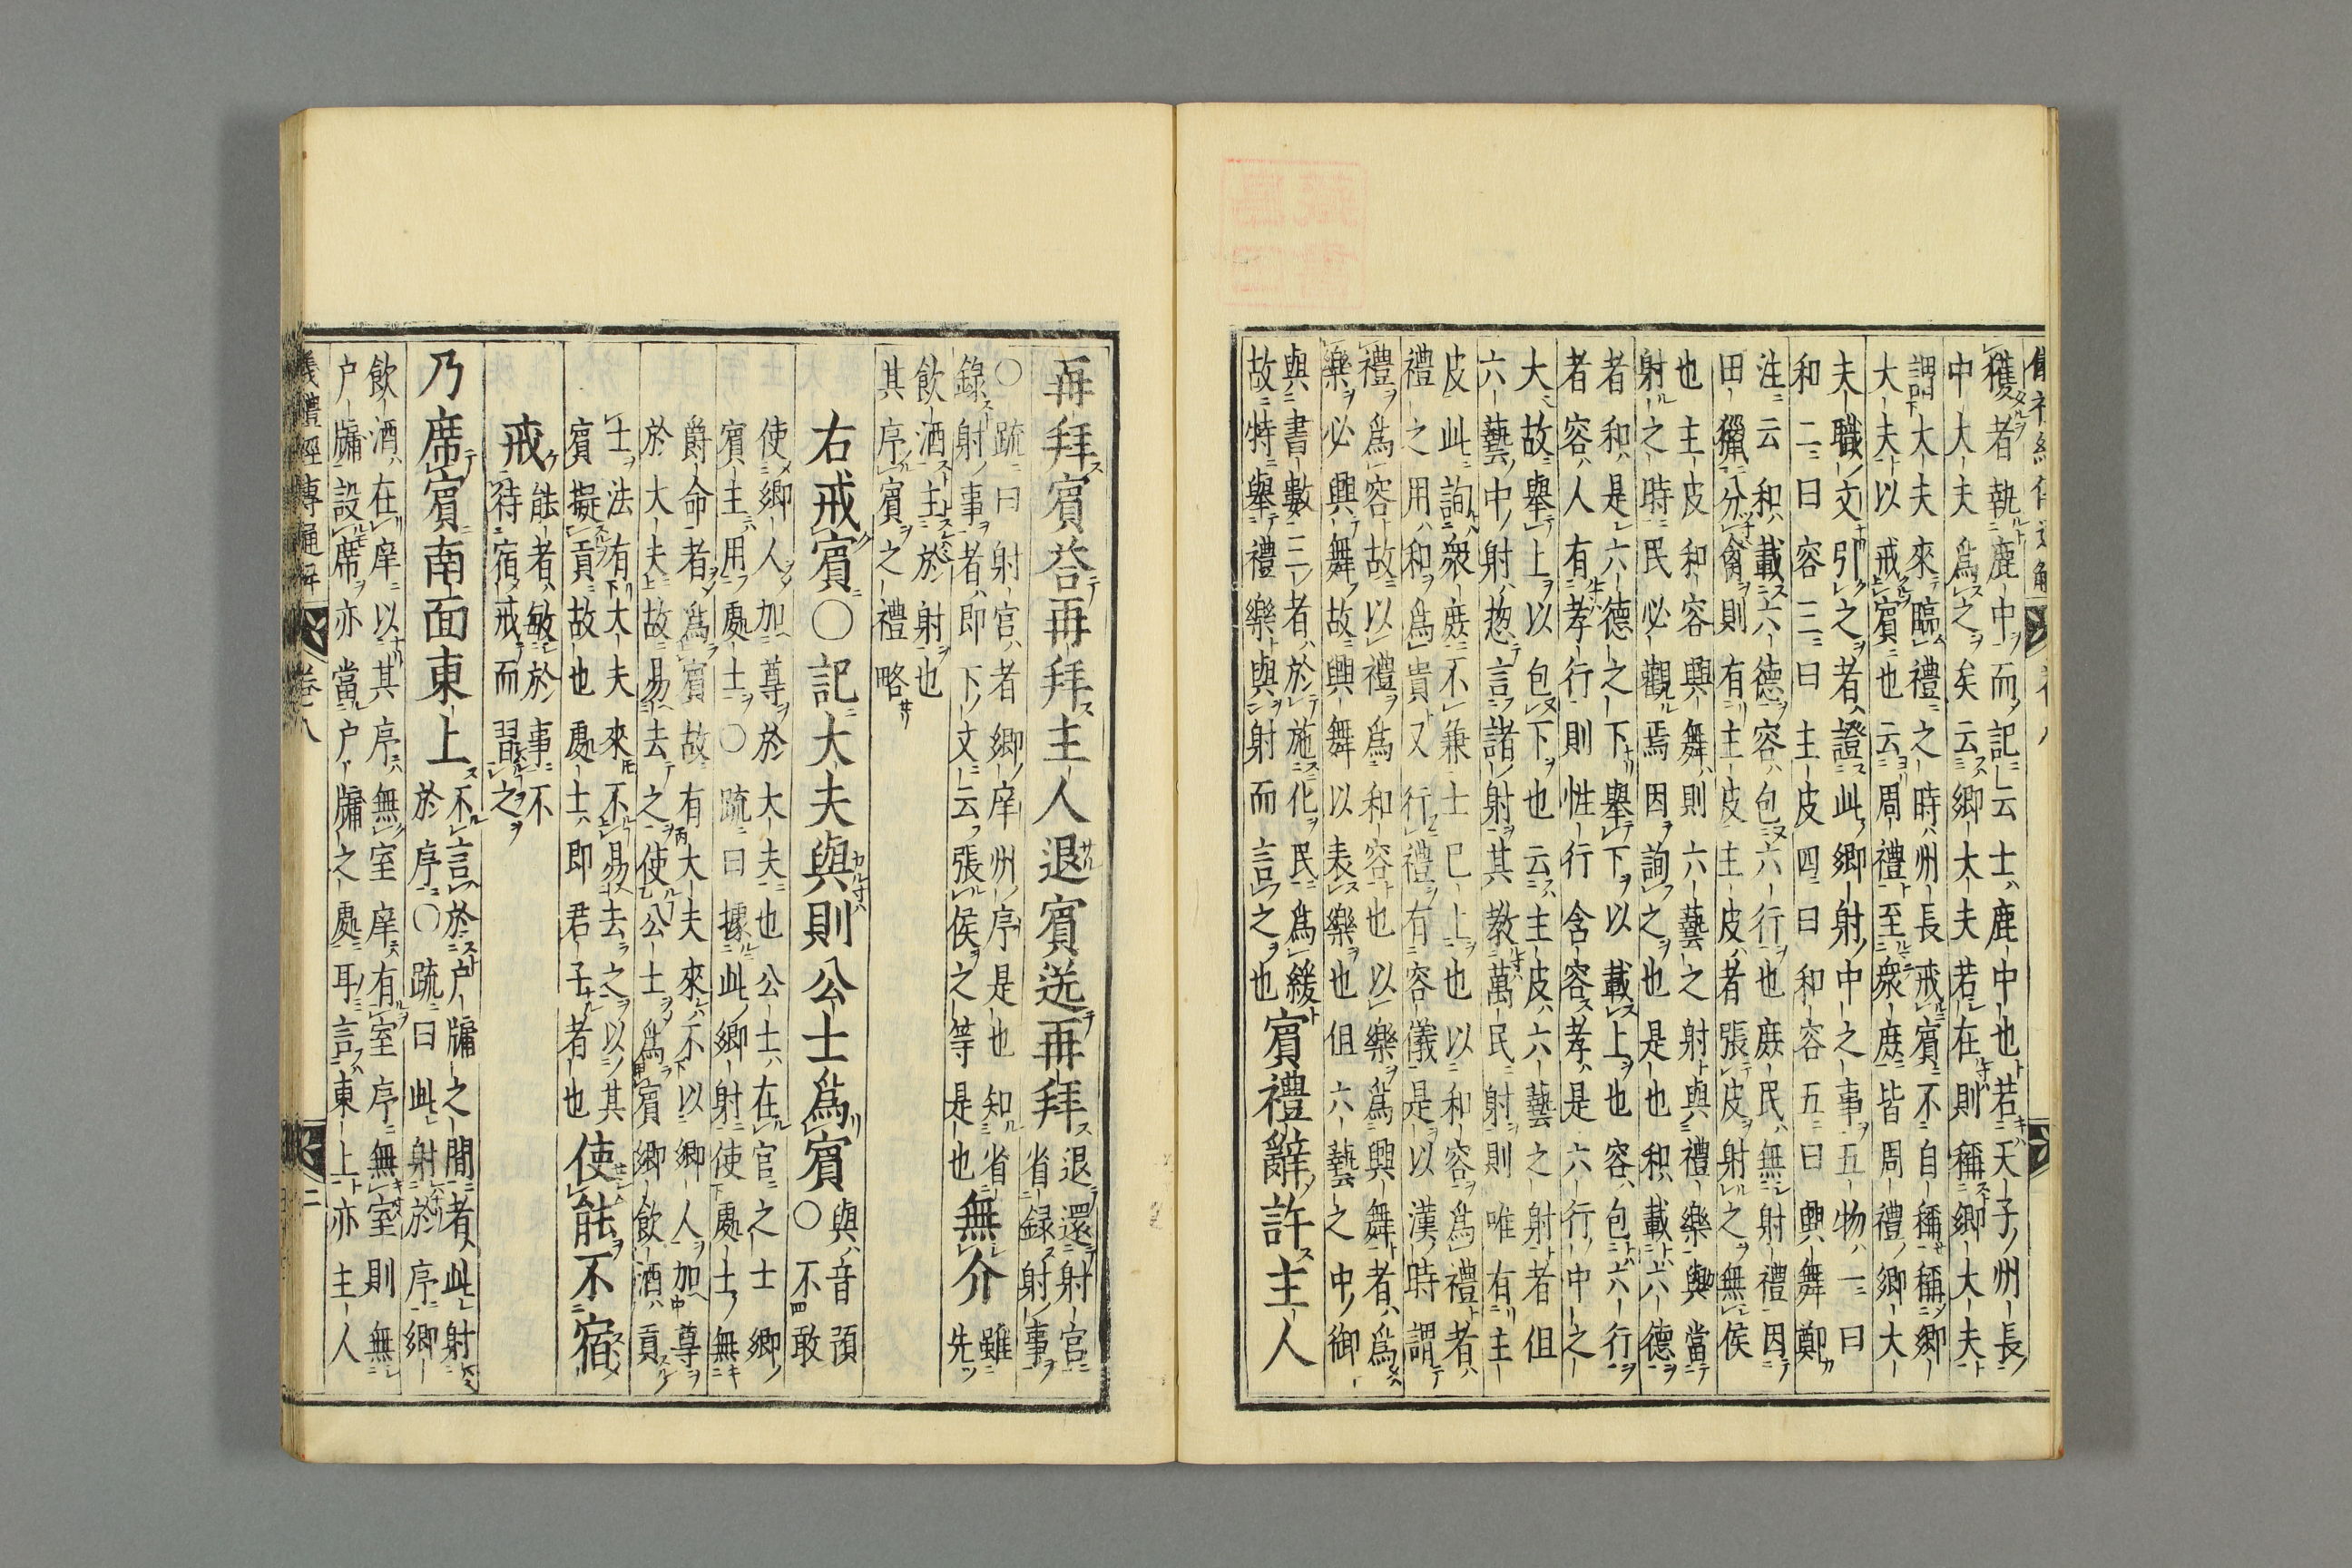 獲者執鹿中而記云士鹿中也若天子州長
中大夫為之矣云卿大夫若在則稱卿大夫
謂大夫來臨禮之時州長戒賓不自稱稱卿
大夫以戒賓也云周禮至衆庶皆周禮卿大
夫職文引之者證此卿射中之事五物一曰
和二曰容三曰主皮四曰和容五曰興舞鄭
注云和載六德容包六行也庶民無射禮因
田獵分禽則有主皮主皮者張皮射之無侯
也主皮和容興舞則六藝之射與禮樂與當
射之時民必觀焉因詢之也是也和載六德
者和是六德之下舉下以載上也容包六行
者容人有孝行則性行含容孝是六行中之
大故舉上以包下也云主皮六藝之射者但
六藝中射揔言諸射其教萬民射則唯有主
皮此詢衆庶不兼士已上也以和容爲禮者
禮之用和爲貴又行禮有容儀是以漢時謂
禮爲容故以禮爲和容也以樂爲興舞者爲
樂必興舞故興舞以表樂也但六藝之中御
與書數三者於施化民爲緩
故特舉禮樂與射而言之也
賓禮辭許主人
再拜賓荅再拜主人退賓送再拜
退還射官
省録射事
○疏曰射官者卿庠州序是也知省
録射事者即下文云張侯之等是也
無介
雖先
飲酒主於射也
其序賓之禮略
右戒賓○記大夫與則公士爲賓
與音預
○不敢
使卿人加尊於大夫也公士在官之士卿
賓主用處士○疏曰據此卿射使處士無
爵命者爲賓故有大夫來不以卿人加尊
於大夫故易去之使公士爲賓卿飲酒貢
士法有大夫來不易去之以其
賓擬貢故也處士即君子者也
使能不宿
戒
能者敏於事不
待宿戒而習之
乃席賓南面東上
不言於戶牖之間者此射
於序○疏曰此射於序卿
飲酒在庠以其序無室庠有室序無室則無
戶牖設席亦當戶牖之處耳言東上亦主人
儀禮經傳通解
卷八
二